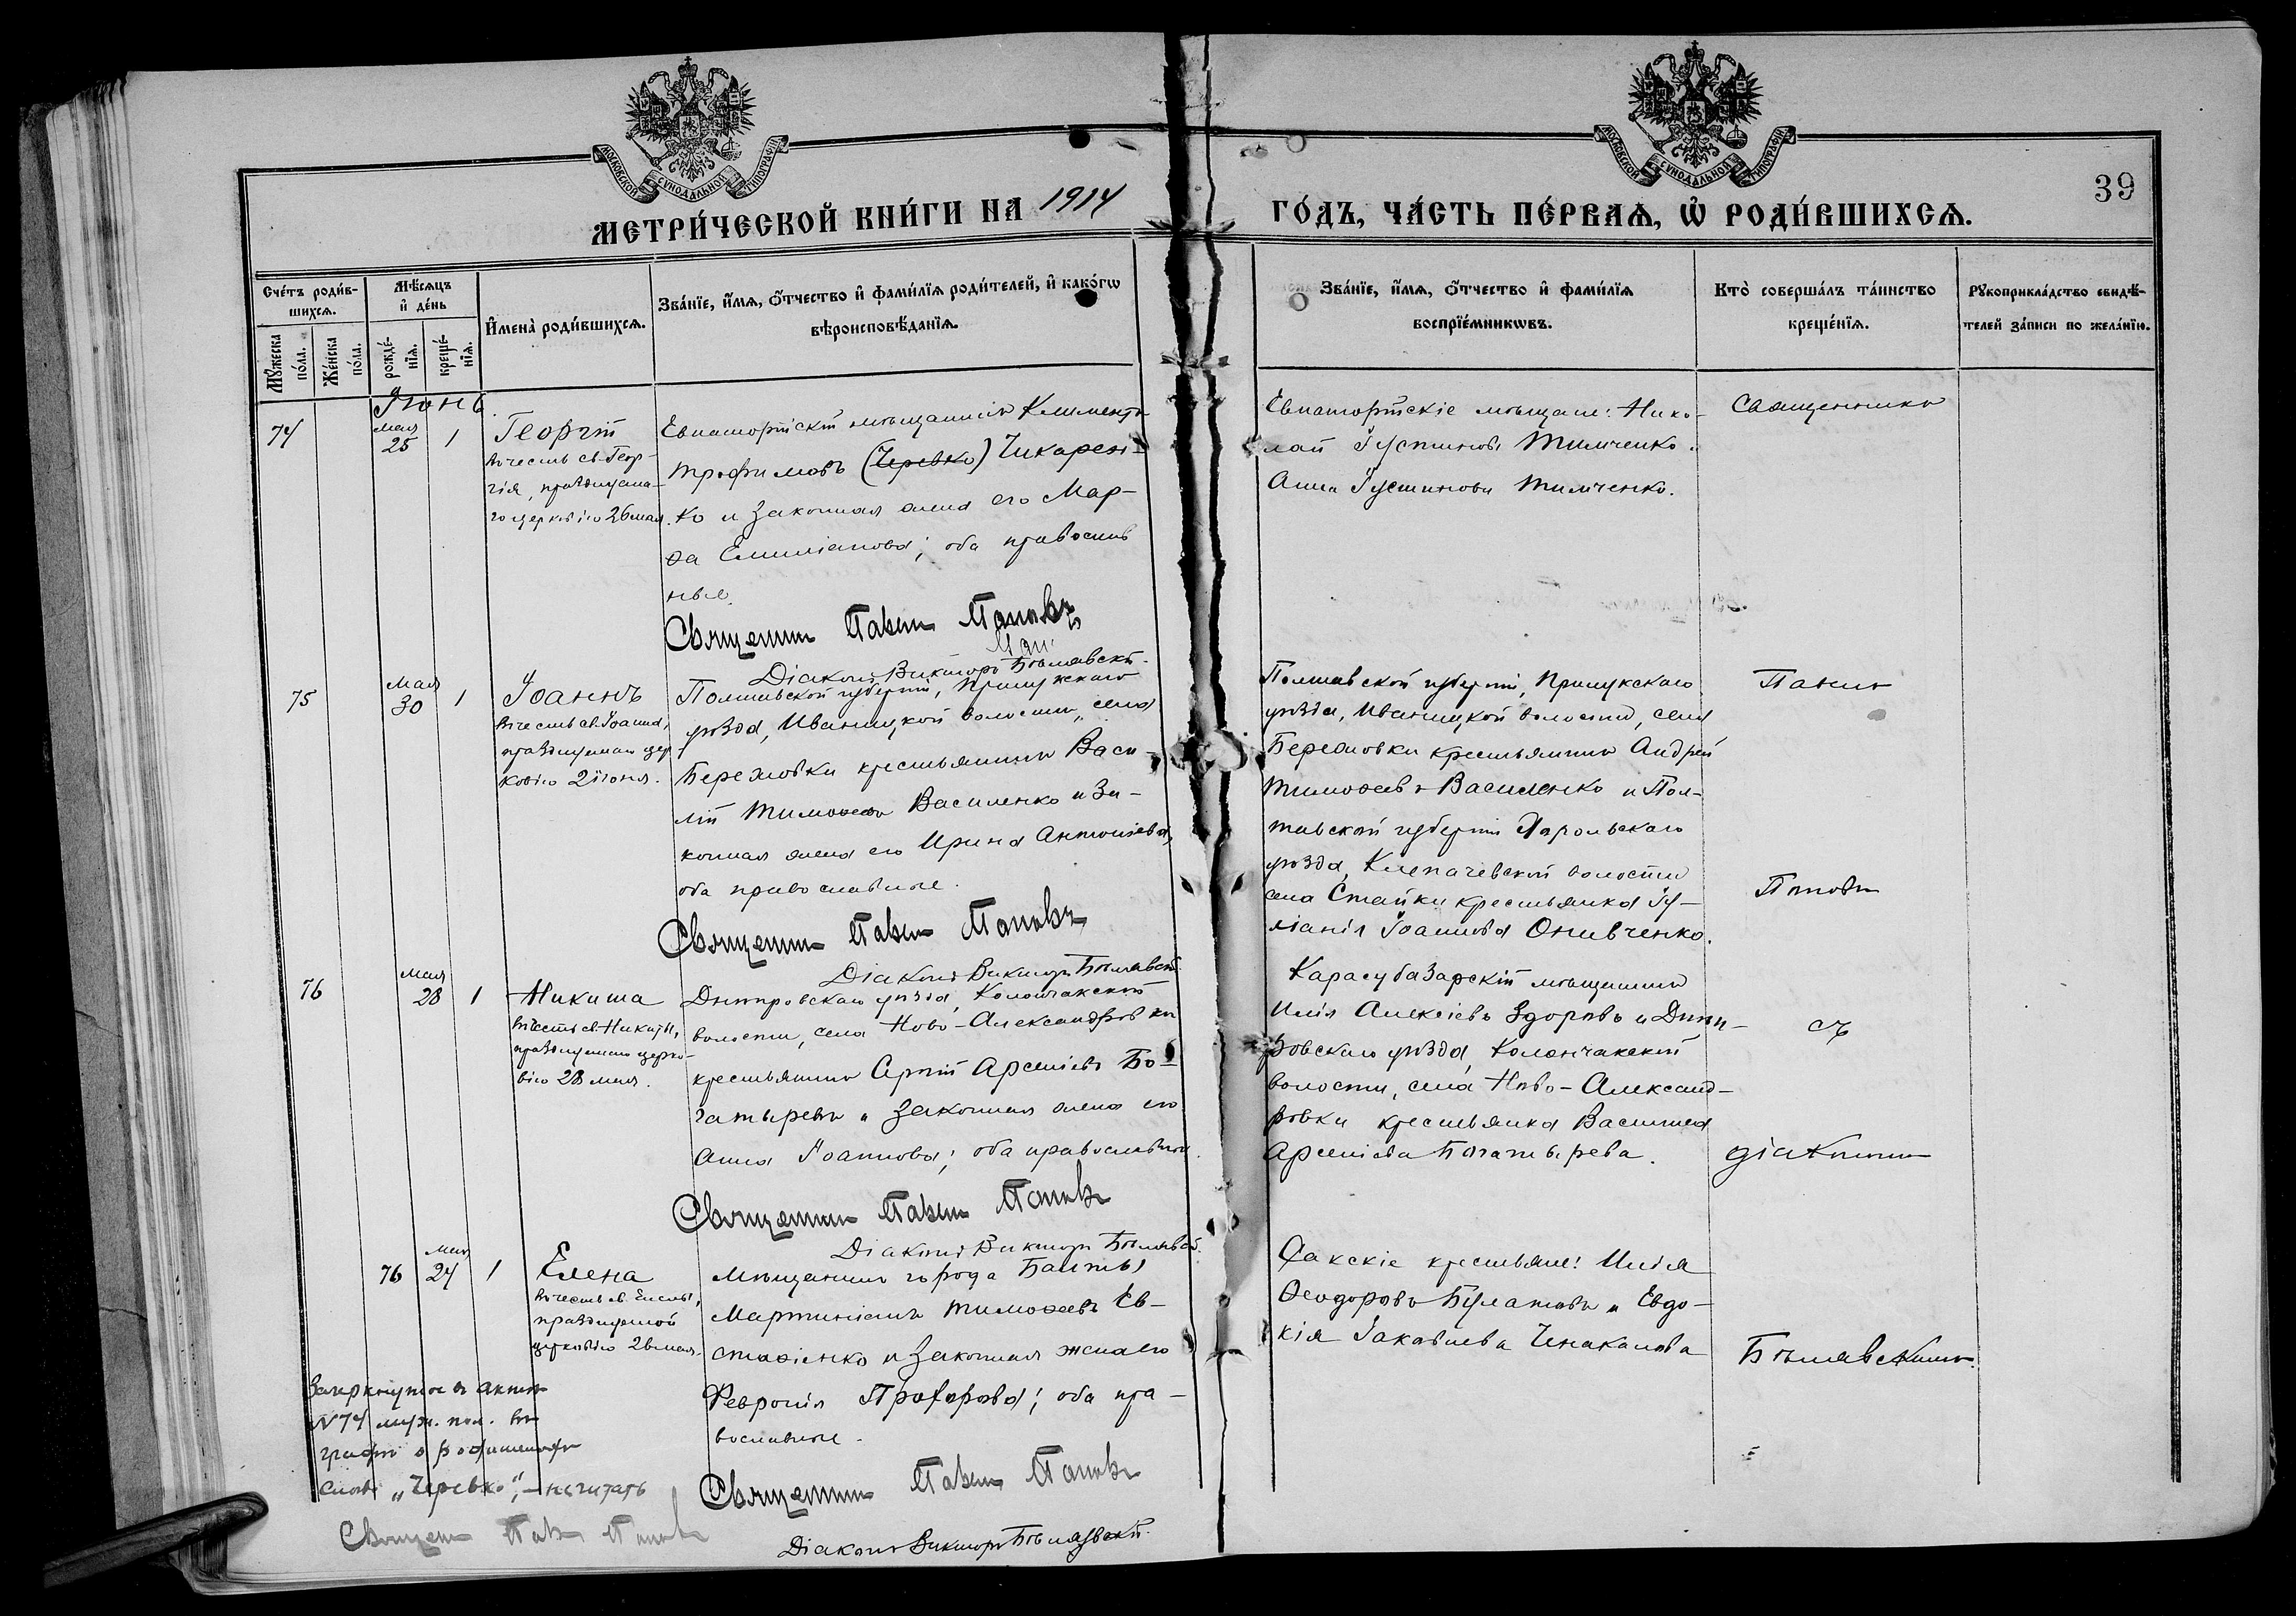 МОСКОВСКОЙ СѴНОДАЛЬНОЙ ТИПОГРАФІИ
МОСКОВСКОЙ СѴНОДАЛЬНОЙ ТИПОГРАФІИ
39
МЕТРИ́ЧЕСКОЙ КНИ́ГИ НА 1914
ГО́ДЪ, ЧА́СТЬ ПЕ́РВАѦ, Ѽ РОДИ́ВШИХСѦ.
Сче́тъ роди́в-
шихсѧ.
Мꙋ́жеска
по́ла.
Же́нска
по́ла.
Мѣ́сѧцъ
и҆ де́нь
рожде́-
нїѧ.
креще́-
нїѧ.
И҆мена̀ роди́вшихсѧ.
Зва́нїе, и҆́мѧ, ѻ҆́тчество и҆ фами́лїѧ роди́телей, и҆ како́гѡ
вѣроисповѣ́данїѧ.
Зва́нїе, и҆́мѧ, ѻ҆́тчество и҆ фами́лїѧ
воспрїе́мникѡвъ.
Кто̀ соверша́лъ та́инство
креще́нїѧ.
Рꙋкоприкла́дство свидѣ́-
телей за́писи по жела́нїю.
Іюнь.
74
мая
25
1
Георгій
въ честь св. Геор-
гія, празднуема-
го церковію 26 мая.
Евпаторійскій мѣщанинъ Климентъ
Трофимовъ (Черевко) Чикарен-
ко и законная жена его Мар-
ѳа Емиліанова; оба православ
ные.
Священник Павел Поповъ
Діаконъ Викторъ Бѣлявскій.
Евпаторійскіе мѣщане: Нико-
лай Іустиновъ Тимченко и
Анна Іустинова Тимченко.
Священникъ
75
Мая
30
1
Іоаннъ
въ честь св. Іоанна,
празднуемаго цер
ковію 2 іюня.
Полтавской губерніи, Прилукскаго
уѣзда, Иваницкой волости, села
Бережовки крестьянинъ Васи-
лій Тимоѳеевъ Василенко и за-
конная жена его Ирина Антоніева,
оба православные.
Священник Павел Поповъ
Діаконъ Викторъ Бѣлявскій.
Полтавской губерніи, Прилукскаго
уѣзда, Иваницкой волости, села
Бережовки крестьянинъ Андрей
Тимоѳеевъ Василенко и Пол-
тавской губерніи Хорольскаго
уѣзда, Клепачевской волости
села Стайки крестьянка Іу-
ліанія Іоаннова Онивченко.
Павелъ
Поповъ
76
Мая
28
1
Никита
въ честь св. Никиты,
празднуемаго церко-
вію 28 мая.
Днѣпровскаго уѣзда, Колончакской
волости, села Ново-Александровки
крестьянинъ Сергій Арсеніевъ Бо-
гатыревъ и законная жена его
Анна Іоаннова; оба православные.
Священник Павел Поповъ
Діаконъ Викторъ Бѣлявскій.
Карасубазарскій мѣщанинъ
Илія Алексіевъ Здоровъ и Днѣп-
ровскаго уѣзда, Колончакской
волости, села Ново-Александ-
ровки крестьянка Василиса
Арсеніева Богатырева.
съ
діакономъ
76
Мая
24
1
Елена
въ честь св. Елены,
празднуемой
церковію 26 мая.
Мѣщанинъ города Балты
Мартиніанъ Тимоѳеевъ Ев-
стафіенко и законная жена его
Февронія Прохорова; оба пра-
вославные.
Священник Павел Поповъ
Діаконъ Викторъ Бѣлявскій.
Сакскіе крестьяне: Илія
Ѳеодоровъ Булатовъ и Евдо-
кія Іаковлева Чекаканова
Бѣлявскимъ.
Зачеркнутое в актѣ
№ 74 муж. пол. въ
графѣ о родителяхъ
слово „Черевко", - не читать
Священ Пав Попов